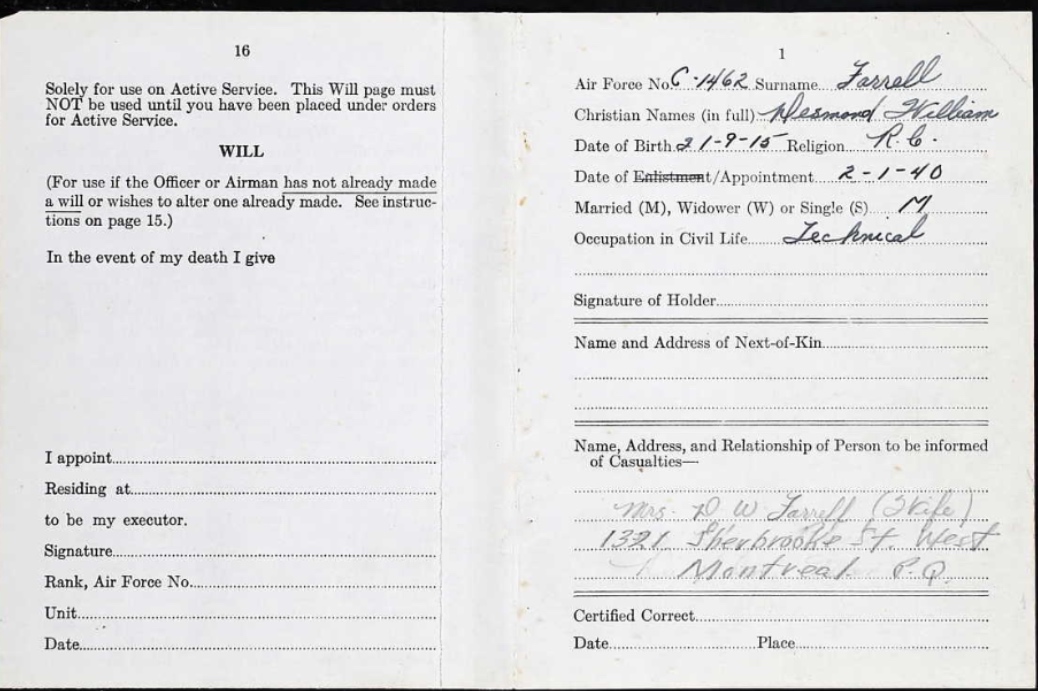 16
Solely for use on Active Service. This Will page must
NOT be used until you have been placed under orders
for Active Service.
WILL
(For use if the Officer or Airman has not already made
a will or wishes to alter one already made. See instruc-
tions on page 15.)
In the event of my death I give
I appoint
Residing at
to be my executor.
Signature
Rank, Air Force No.
Unit
Date
1
Air Force No. C-1462 Surname Farrell
Christian Names (in full) Desmond William
Date of Birth 21-9-15 Religion R.C.
Date of Enlistment/Appointment 2-1-40
Married (M), Widower (W) or Single (S) M
Occupation in Civil Life Technical
Signature of Holder
Name and Address of Next-of-Kin
Name, Address, and Relationship of Person to be informed
of Casualties—
Mrs. D W Farrell (Wife)
1321 Sherbrooke St. West
Montreal P.Q.
Certified Correct
Date Place